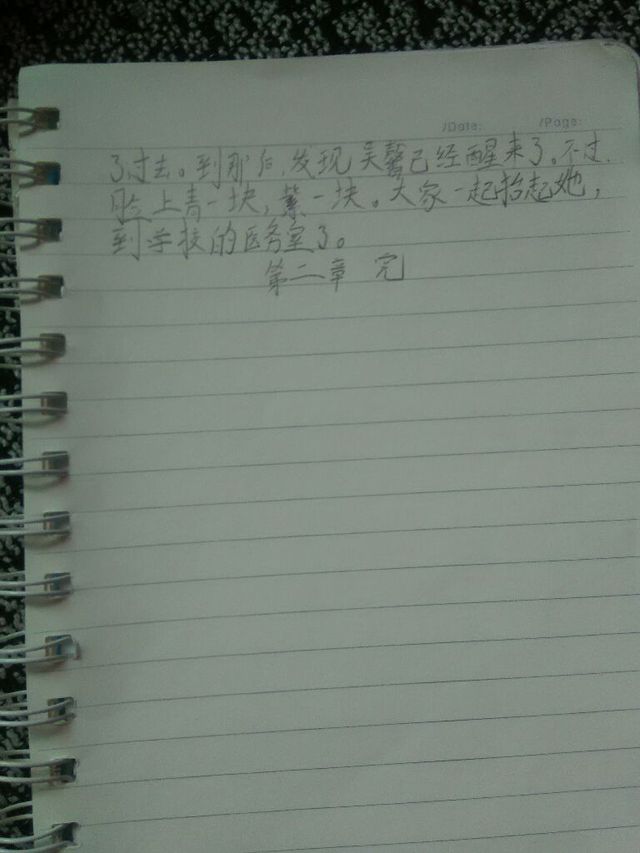 /Date: /Page:
了过去。到那后,发现吴馨已经醒来了。不过,
脸上青一块,紫一块。大家一起抬起她,
到学校的医务室了。
第二章 完